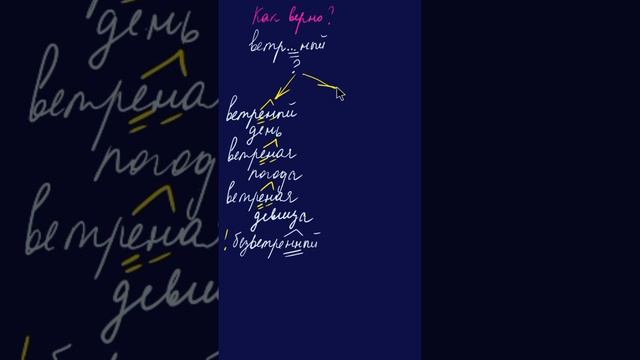 Как верно?
ветр...ный
?
ветреный
день
ветреная
погода
ветреная
девица
! безветренный